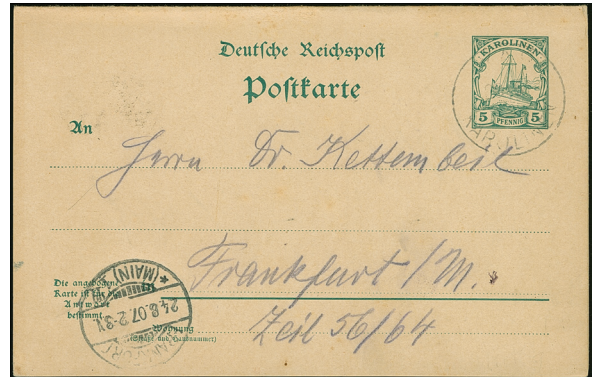 Deutsche Reichspost
Postkarte
KAROLINEN
5 PFENNIG 5
KAROLINEN
An
Herrn Dr. Kettembeil
Frankfurt / M.
Zeil 56/64
Die angebogene
Karte ist für die
Antwort
bestimmt.
Wohnung
(Straße und Hausnummer)
FRANKFURT (MAIN) 1
24.8.07.2-3